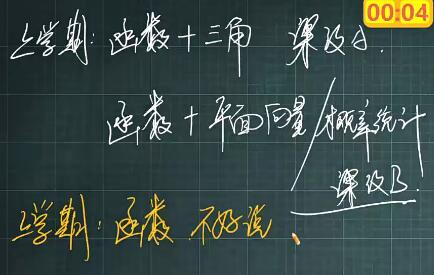 00:04
上学期：函数+三角 课改A.
函数+平面向量/概率统计
课改B.
上学期：函数.不好说.